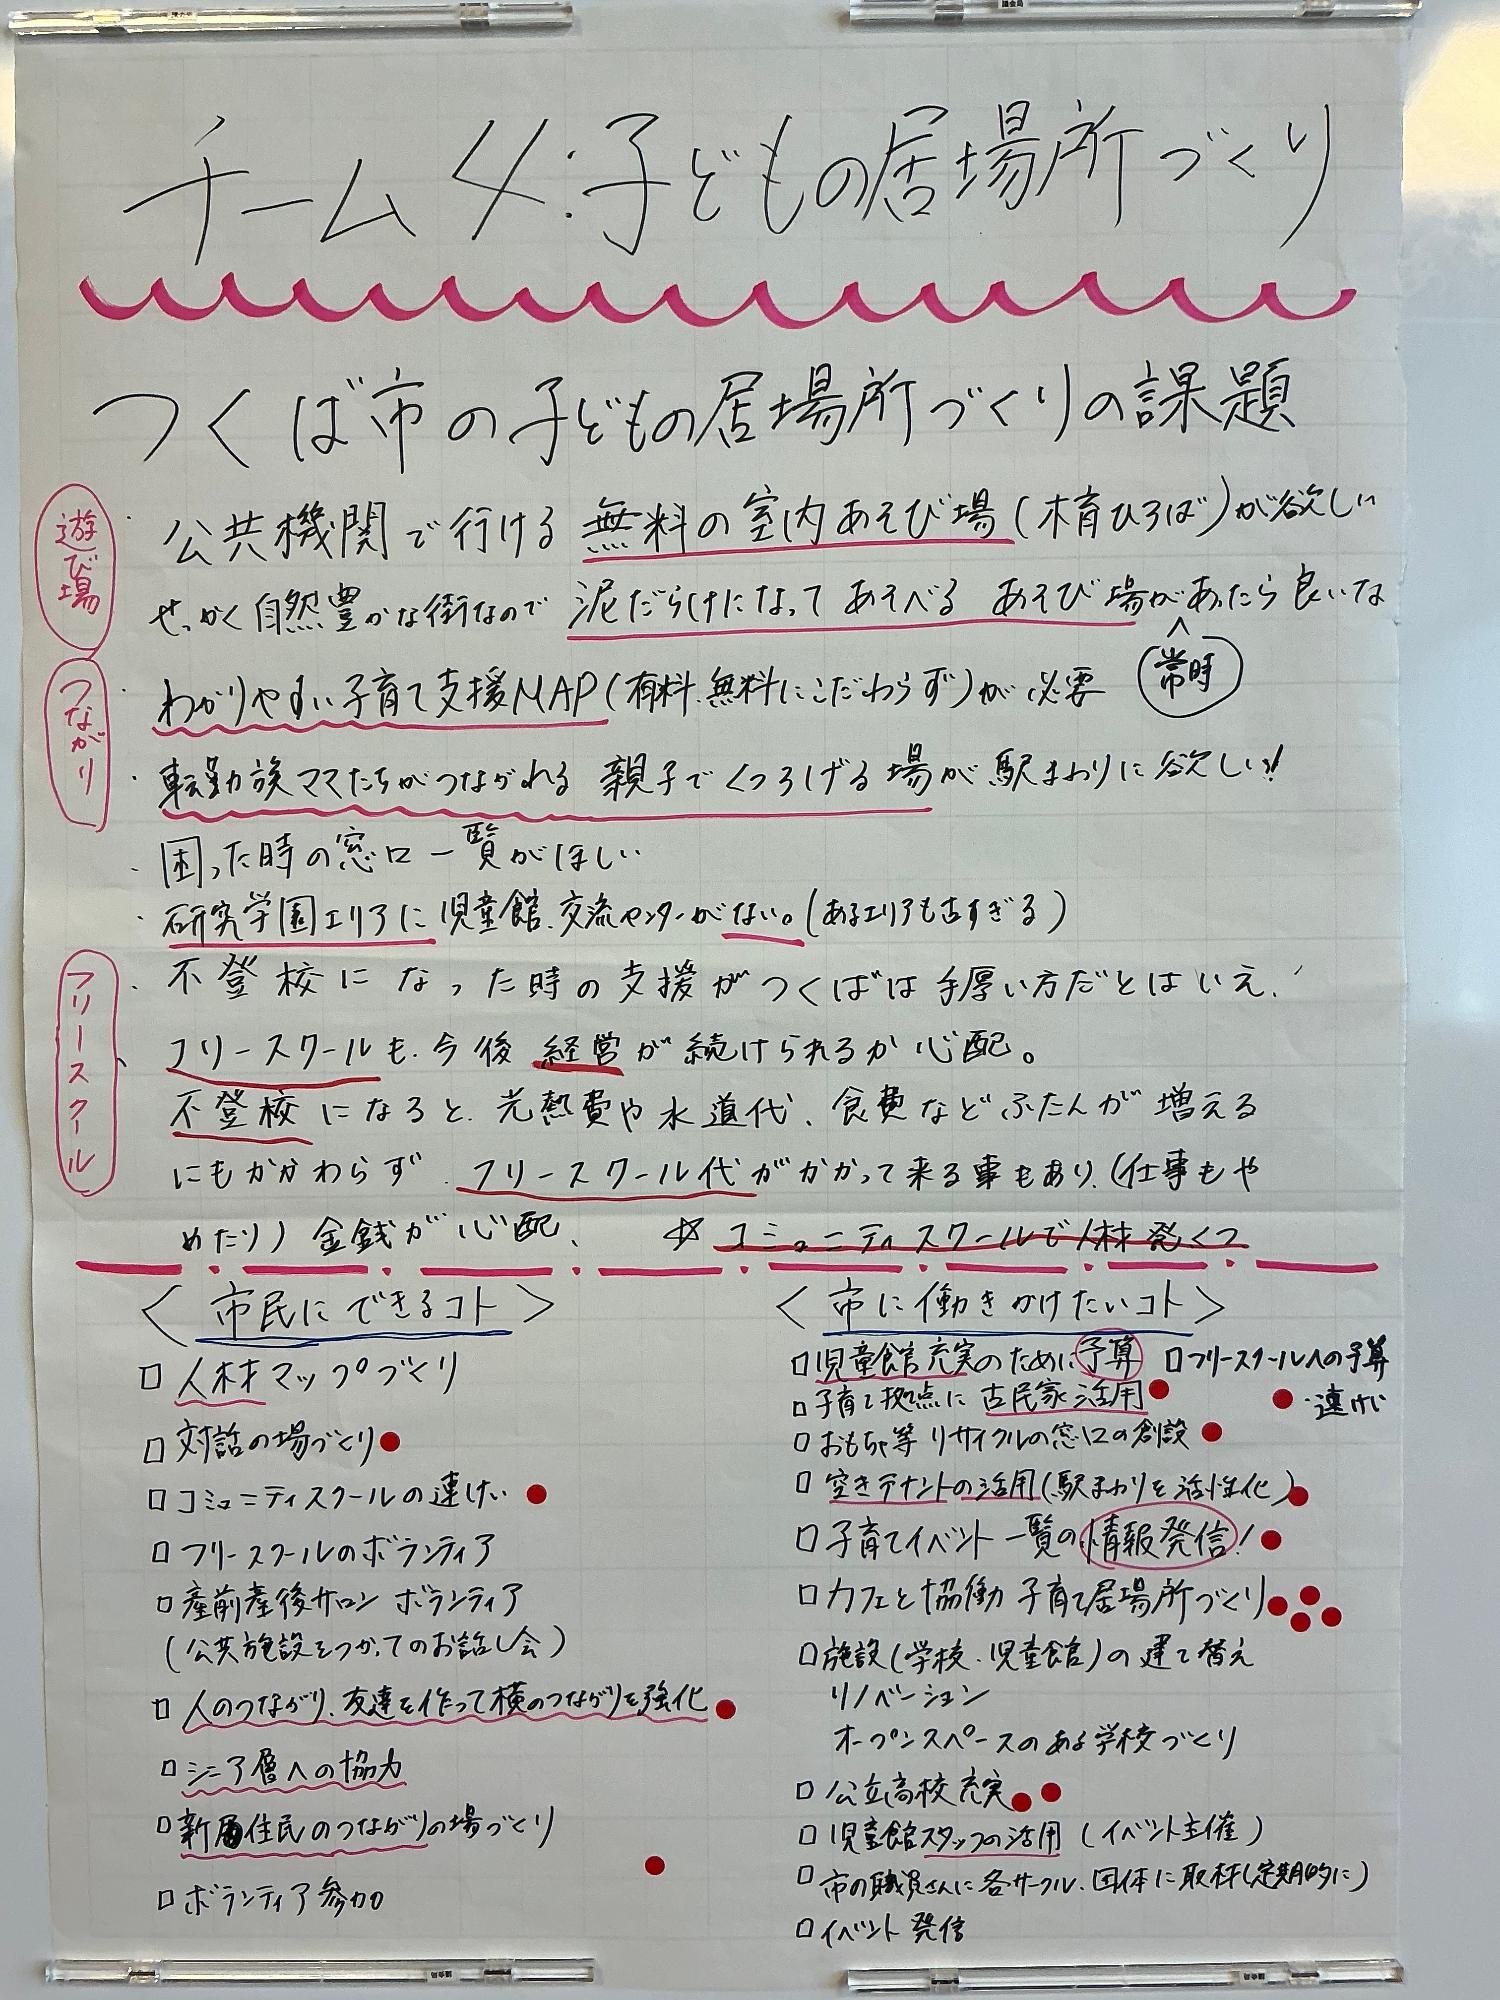 チーム4:子どもの居場所づくり
つくば市の子どもの居場所づくりの課題
遊び場
・公共機関で行ける無料の室内あそび場(木育ひろば)が欲しい
せっかく自然豊かな街なので 泥だらけになって あそべる あそび場があったら良いな
常時
つながり
・わかりやすい子育て支援MAP(有料、無料にこだわらず)が必要
・転勤族ママたちがつながれる 親子でくつろげる場が駅まわりに欲しい!!
・困った時の窓口一覧がほしい
・研究学園エリアに児童館、交流センターがない。(あるエリアも古すぎる)
フリースクール
・不登校になった時の支援がつくばは手厚い方だとはいえ、
フリースクールも、今後経営が続けられるか心配。
不登校になると、光熱費や水道代、食費などふたんが増える
にもかかわらず、フリースクール代がかかって来る事もあり、(仕事もや
めたり)金銭が心配、 ☆コミュニティスクールで人材発くつ
<市民にできるコト>
□人材マップづくり
□対話の場づくり
□コミュニティスクールの連けい
□フリースクールのボランティア
□産前産後サロン ボランティア
(公共施設をつかってのお話し会)
□人のつながり、友達を作って横のつながりを強化
□シニア層への協力
□新居住民のつながりの場づくり
□ボランティア参加
<市に働きかけたいコト>
□児童館充実のために予算 □フリースクールへの予算
・連けい
□子育て拠点に 古民家活用
□おもちゃ等リサイクルの窓口の創設
□空きテナントの活用(駅まわりを活性化)
□子育てイベント一覧の情報発信!
□カフェと協働 子育て居場所づくり
□施設(学校、児童館)の建て替え
リノベーション
オープンスペースのある学校づくり
□公立高校充実
□児童館スタッフの活用(イベント主催)
□市の職員さんに各サークル、団体に取材(定期的に)
□イベント発信